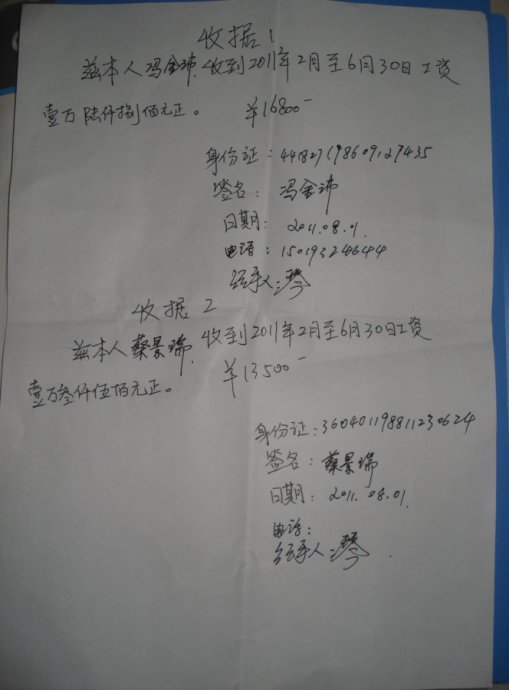 收据1
兹本人冯金玮,收到2011年2月至6月30日工资
壹万陆仟捌佰元正。 ¥16800-
身份证:
签名: 冯金玮
日期: 2011.08.01.
电话: 15019324644
经手人:琴
收据2
兹本人蔡景瑞,收到2011年2月至6月30日工资
¥13500-
壹万叁仟伍佰元正。
身份证:360401198811230624
签名:蔡景瑞
日期: 2011.08.01.
电话:
经手人:琴.